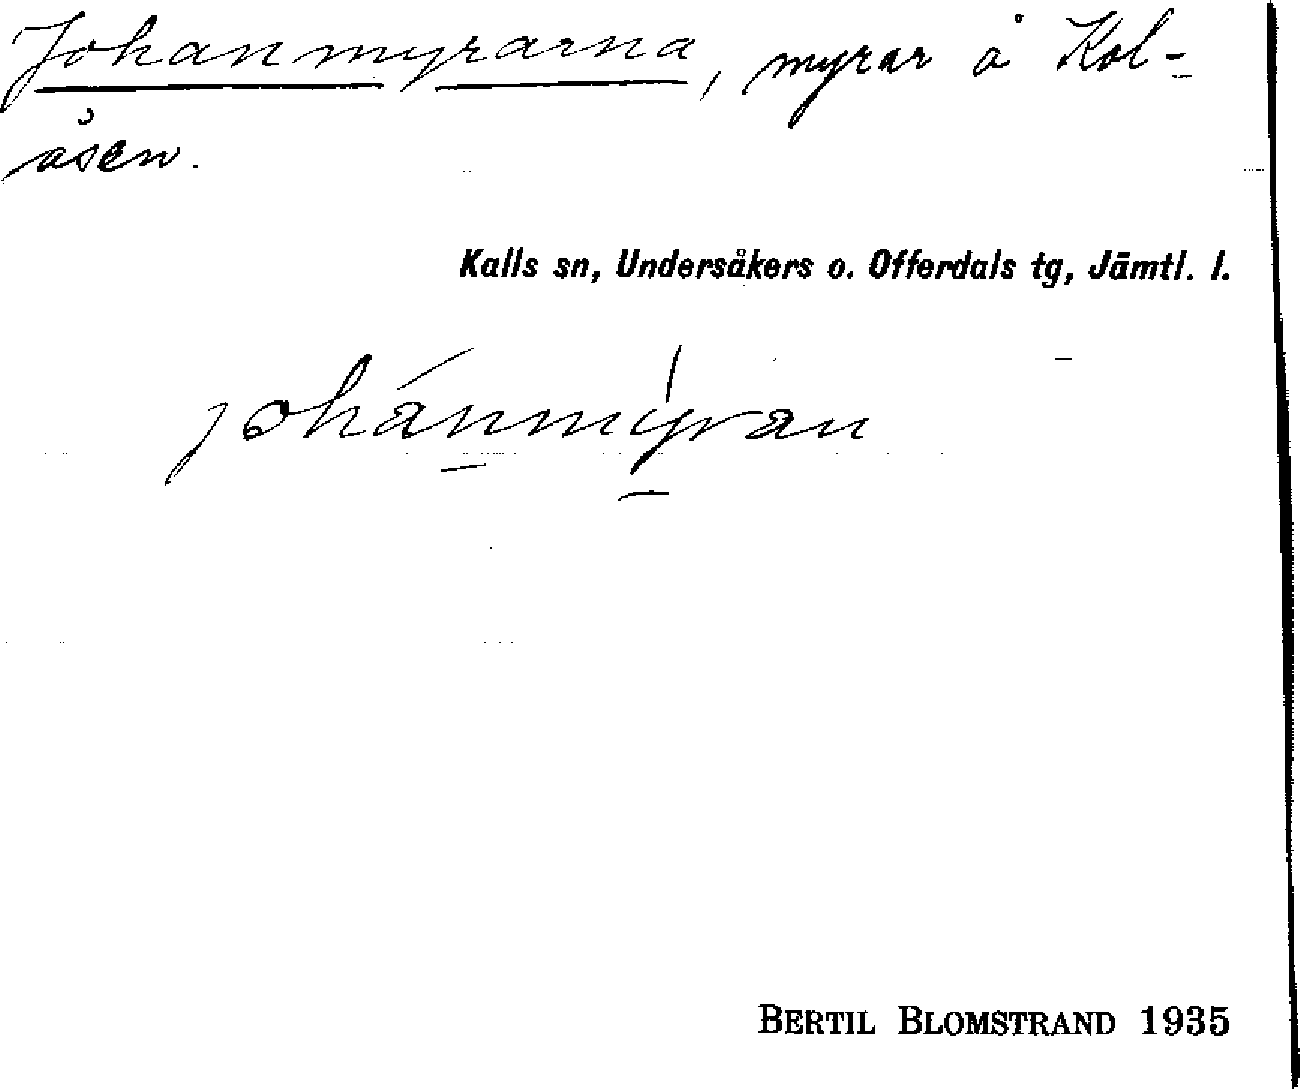 Johanmyrarna, myrar å Kol-
åsen.
Kalls sn, Undersåkers o. Offerdals tg, Jämtl. l.
johánmýran
BERTIL BLOMSTRAND 1935